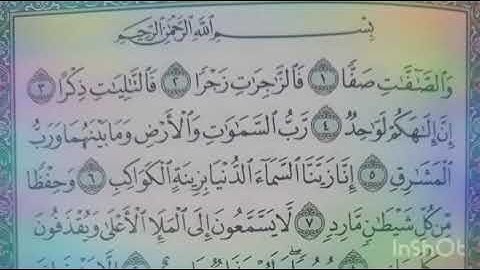 بِسْمِ ٱللَّهِ ٱلرَّحْمَٰنِ ٱلرَّحِيمِ
وَٱلصَّٰٓفَّٰتِ صَفًّا ١ فَٱلزَّٰجِرَٰتِ زَجْرًا ٢ فَٱلتَّٰلِيَٰتِ ذِكْرًا ٣
إِنَّ إِلَٰهَكُمْ لَوَٰحِدٌ ٤ رَّبُّ ٱلسَّمَٰوَٰتِ وَٱلْأَرْضِ وَمَا بَيْنَهُمَا وَرَبُّ
ٱلْمَشَٰرِقِ ٥ إِنَّا زَيَّنَّا ٱلسَّمَآءَ ٱلدُّنْيَا بِزِينَةٍ ٱلْكَوَاكِبِ ٦ وَحِفْظًا
مِّن كُلِّ شَيْطَٰنٍ مَّارِدٍ ٧ لَّا يَسَّمَّعُونَ إِلَى ٱلْمَلَإِ ٱلْأَعْلَىٰ وَيُقْذَفُونَ
InShOt